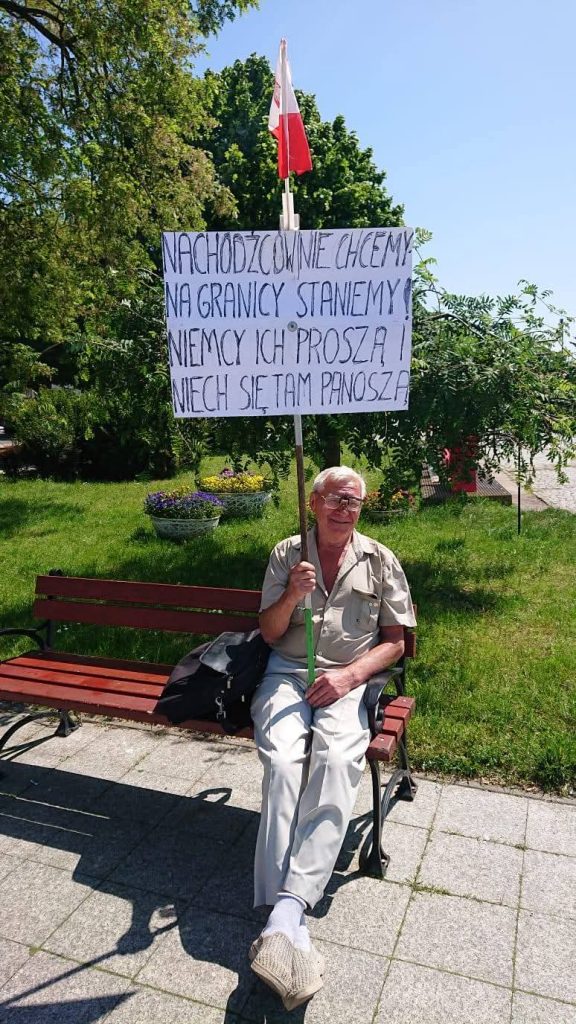 NACHODŹCOWNIE CHCEMY
NA GRANICY STANIEMY!
NIEMCY ICH PROSZĄ I
NIECH SIĘ TAM PANOSZĄ